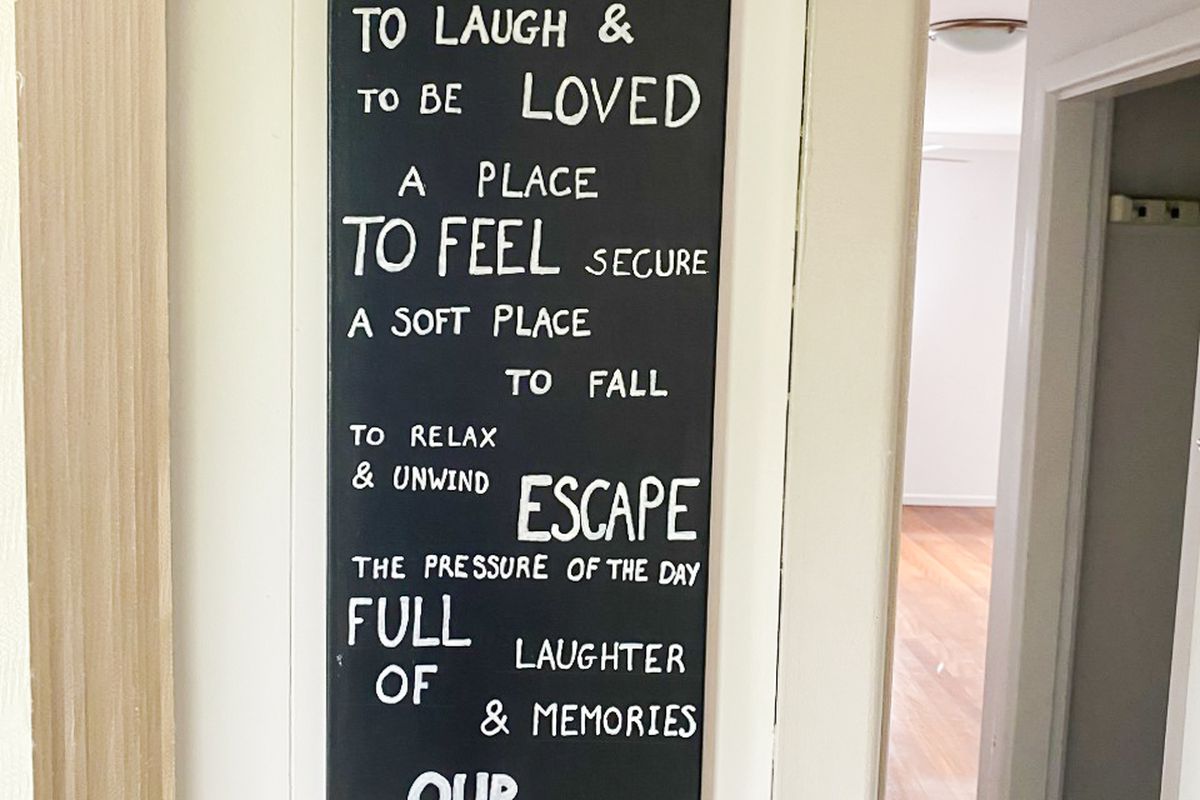 TO LAUGH &
TO BE LOVED
A PLACE
TO FEEL SECURE
A SOFT PLACE
TO FALL
TO RELAX
& UNWIND ESCAPE
THE PRESSURE OF THE DAY
FULL
OF LAUGHTER
& MEMORIES
OUR